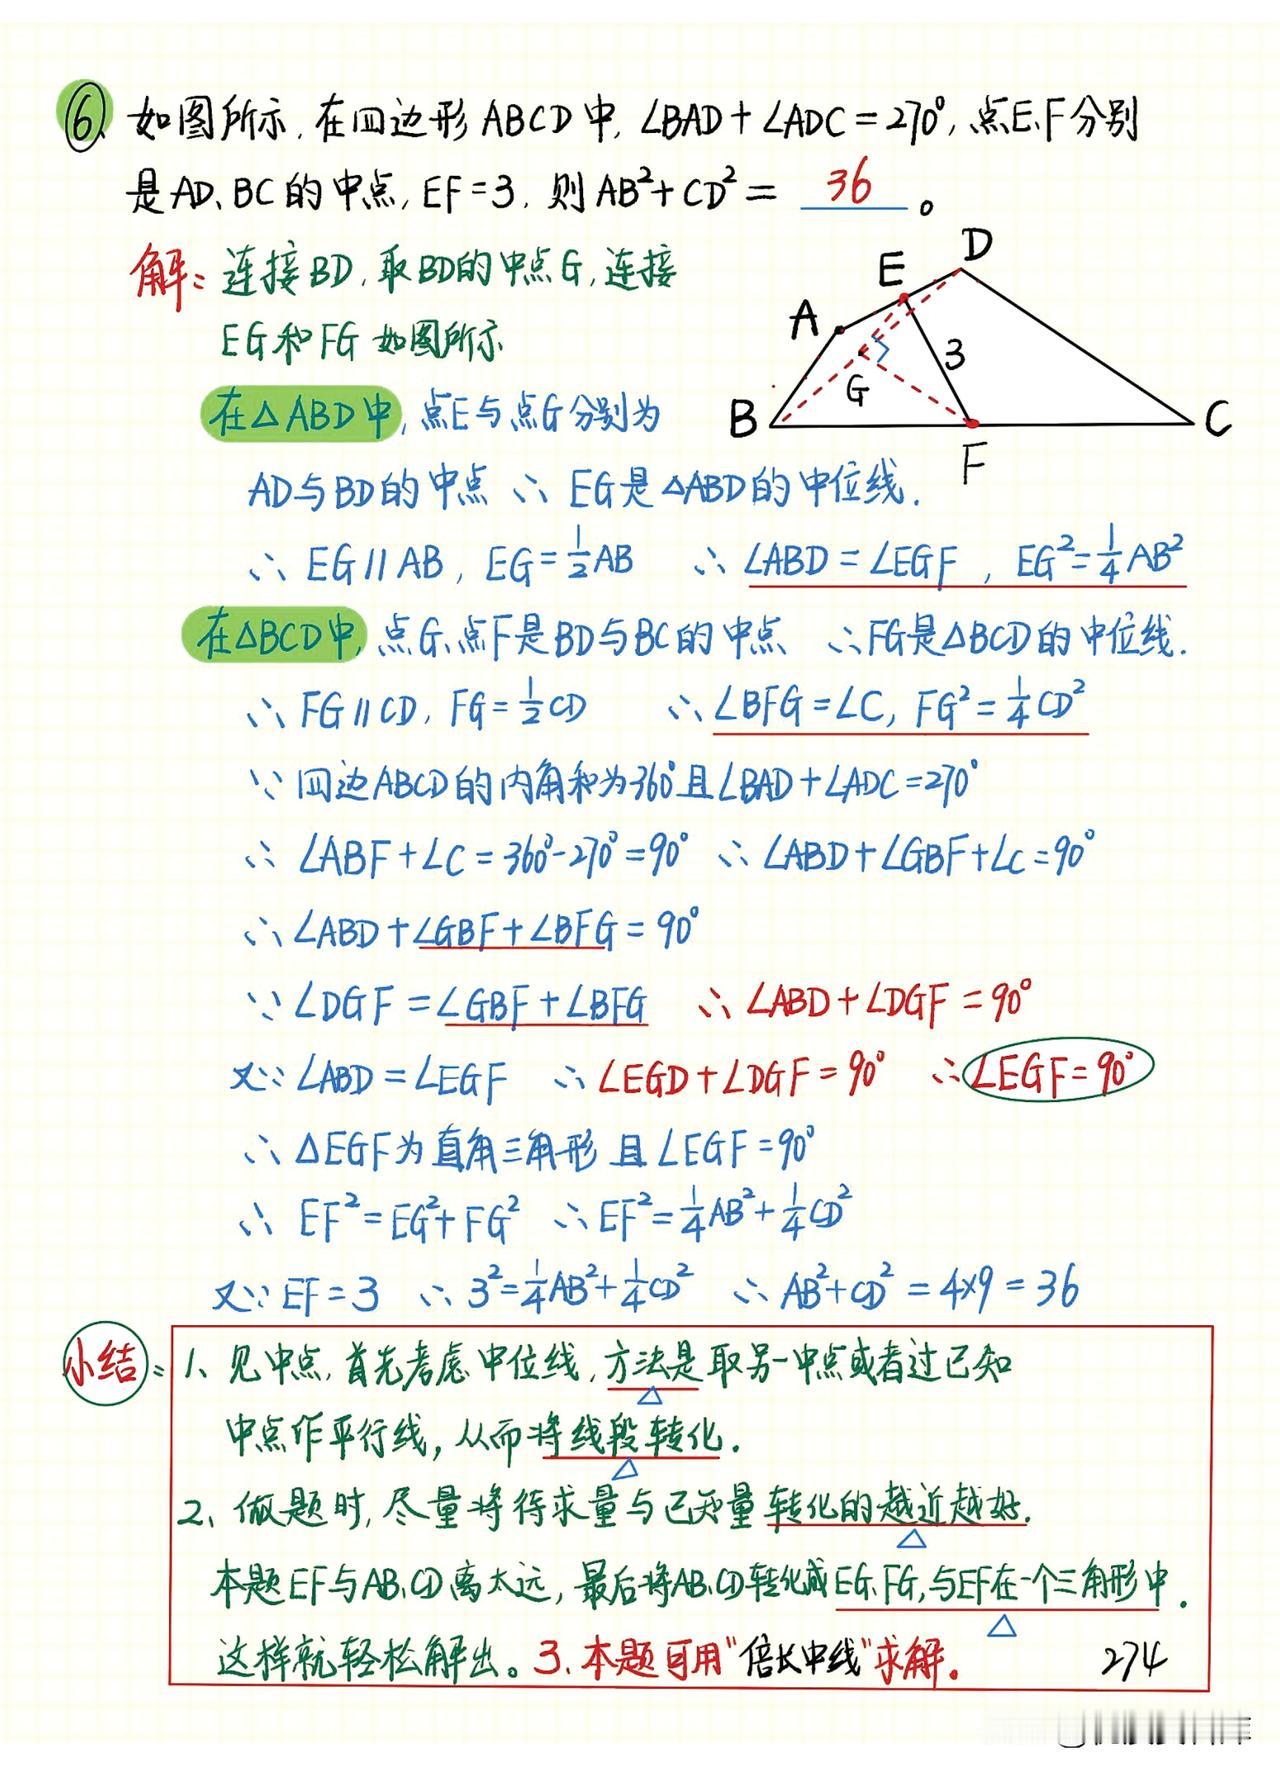 ⑥、如图所示,在四边形ABCD中,∠BAD+∠ADC=270°,点E、F分别
是AD、BC的中点,EF=3,则AB²+CD²= 36 。
解:连接BD,取BD的中点G,连接
EG和FG 如图所示
D
E
A
3
G
B
C
F
在△ABD中,点E与点G分别为
AD与BD的中点 ∴ EG是△ABD的中位线.
∴ EG∥AB, EG=½AB ∴ ∠ABD=∠EGF, EG²=¼AB²
在△BCD中,点G、点F是BD与BC的中点 ∴FG是△BCD的中位线.
∴ FG∥CD, FG=½CD ∴∠BFG=∠C, FG²=¼CD²
∵ 四边ABCD的内角和为360°且∠BAD+∠ADC=270°
∴ ∠ABF+∠C=360°-270°=90° ∴ ∠ABD+∠GBF+∠C=90°
∴∠ABD+∠GBF+∠BFG=90°
∵ ∠DGF=∠GBF+∠BFG ∴∠ABD+∠DGF=90°
又∵∠ABD=∠EGF ∴∠EGD+∠DGF=90° ∴∠EGF=90°
∴ △EGF为直角三角形 且∠EGF=90°
∴ EF²=EG²+FG² ∴EF²=¼AB²+¼CD²
又∵EF=3 ∴3²=¼AB²+¼CD² ∴AB²+CD²=4×9=36
小结: 1、见中点,首先考虑中位线,方法是取另一中点或者过已知
中点作平行线,从而将线段转化.
2、做题时,尽量将待求量与已知量转化的越近越好.
本题EF与AB、CD离太远,最后将AB、CD转化成EG、FG,与EF在一个三角形中.
这样就轻松解出。3、本题可用"倍长中线"求解。 274